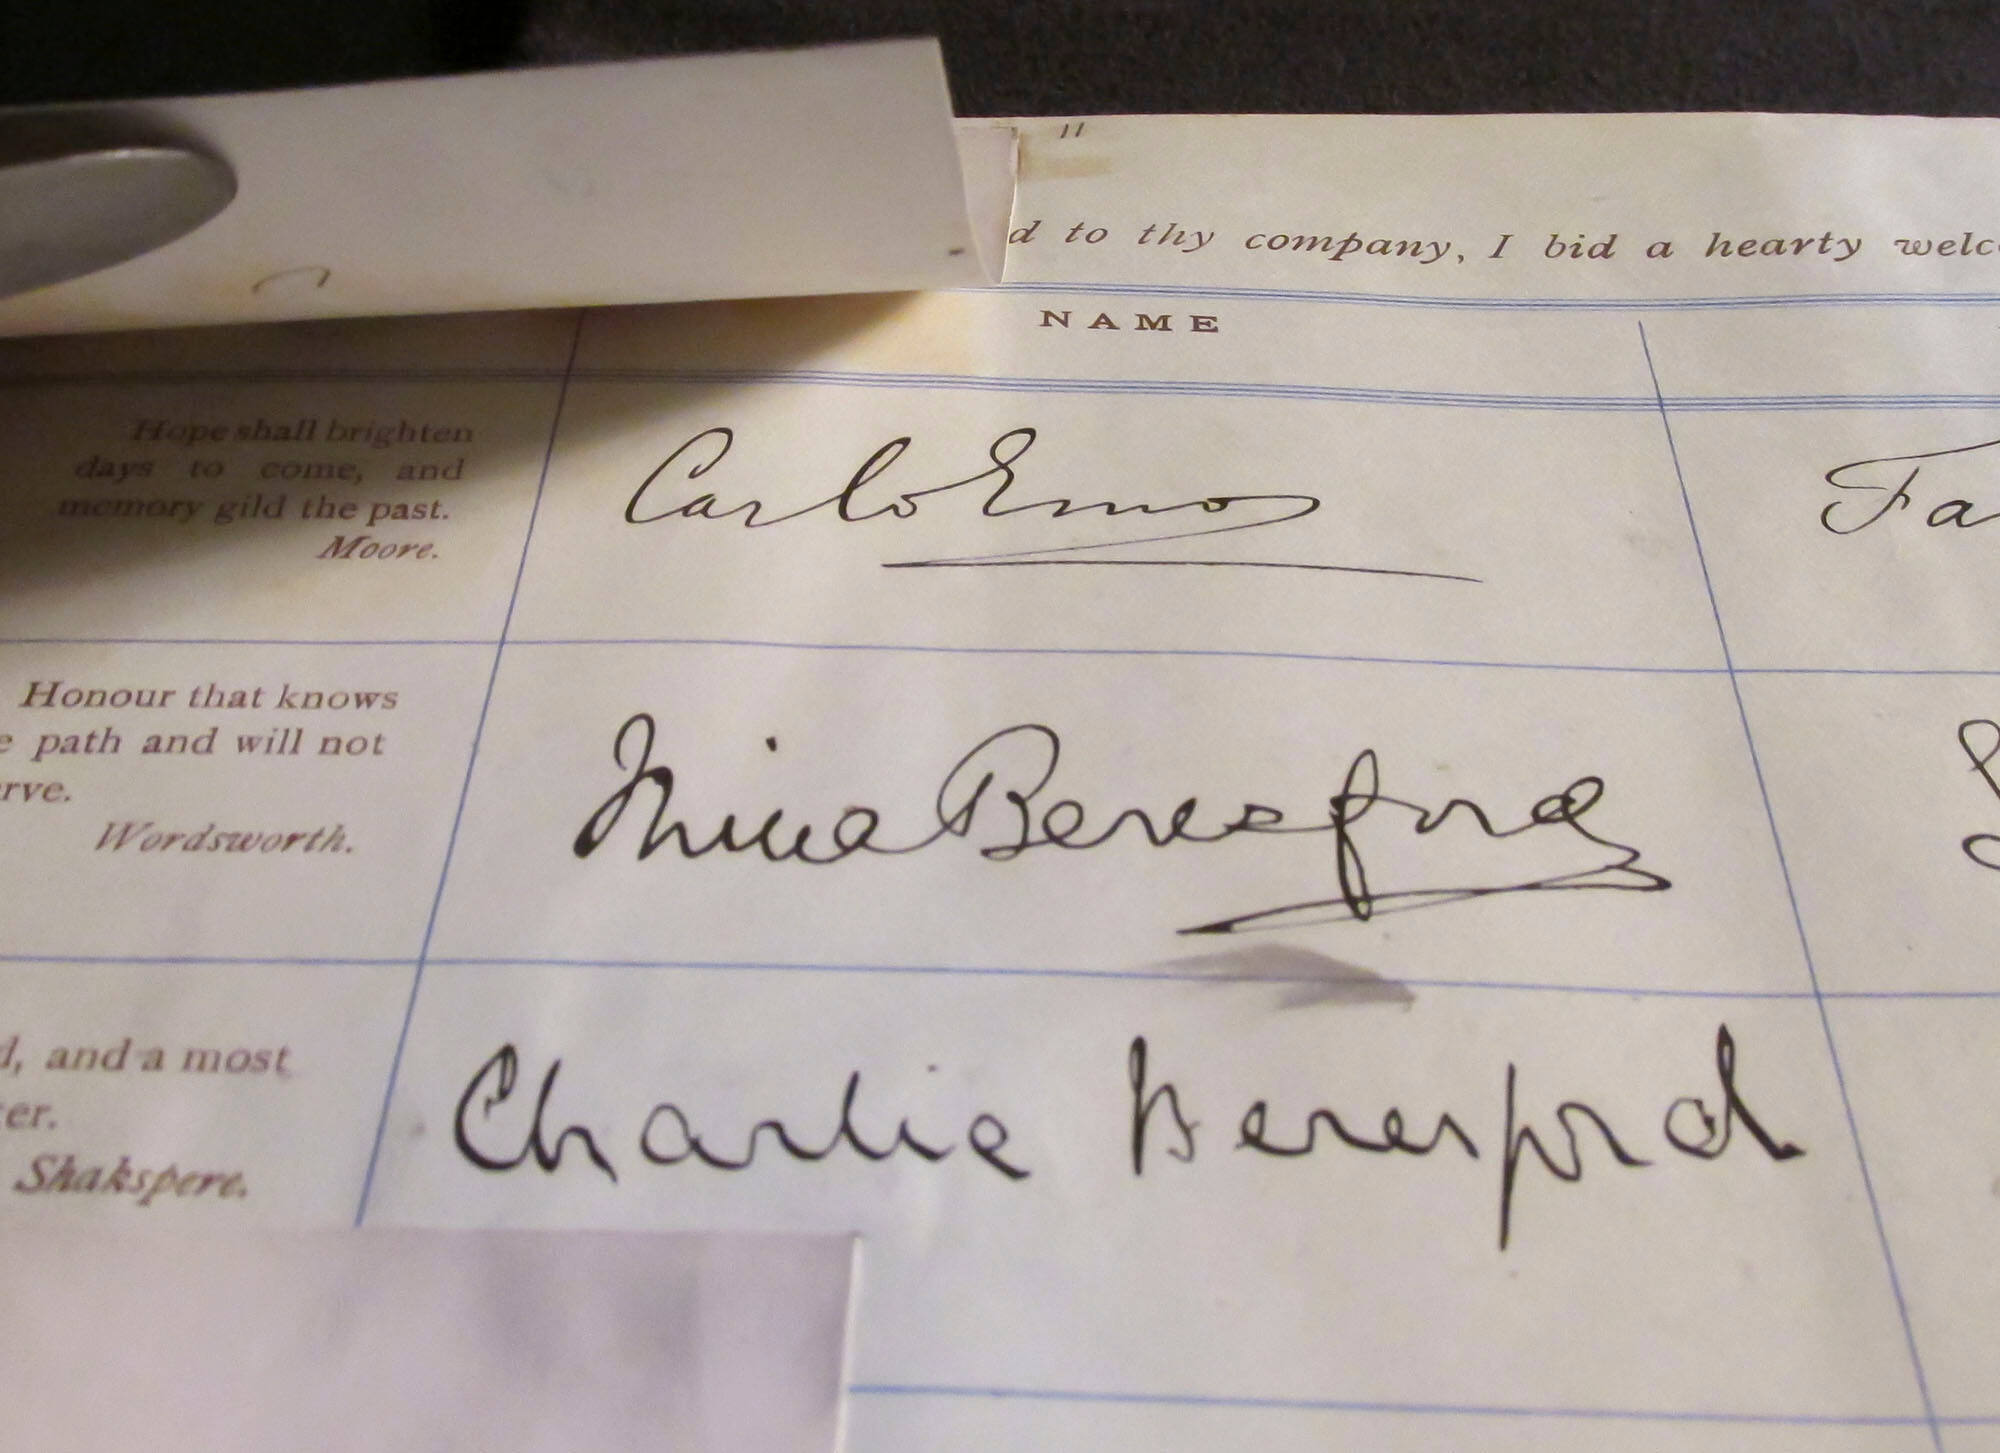 11
d to thy company, I bid a hearty welc
NAME
Hope shall brighten
days to come, and
memory gild the past.
Moore.
Carlo Emos
Fa
Honour that knows
e path and will not
rve.
Wordsworth.
Nina Beresford
d, and a most
er.
Shakspere.
Charlie Beresford